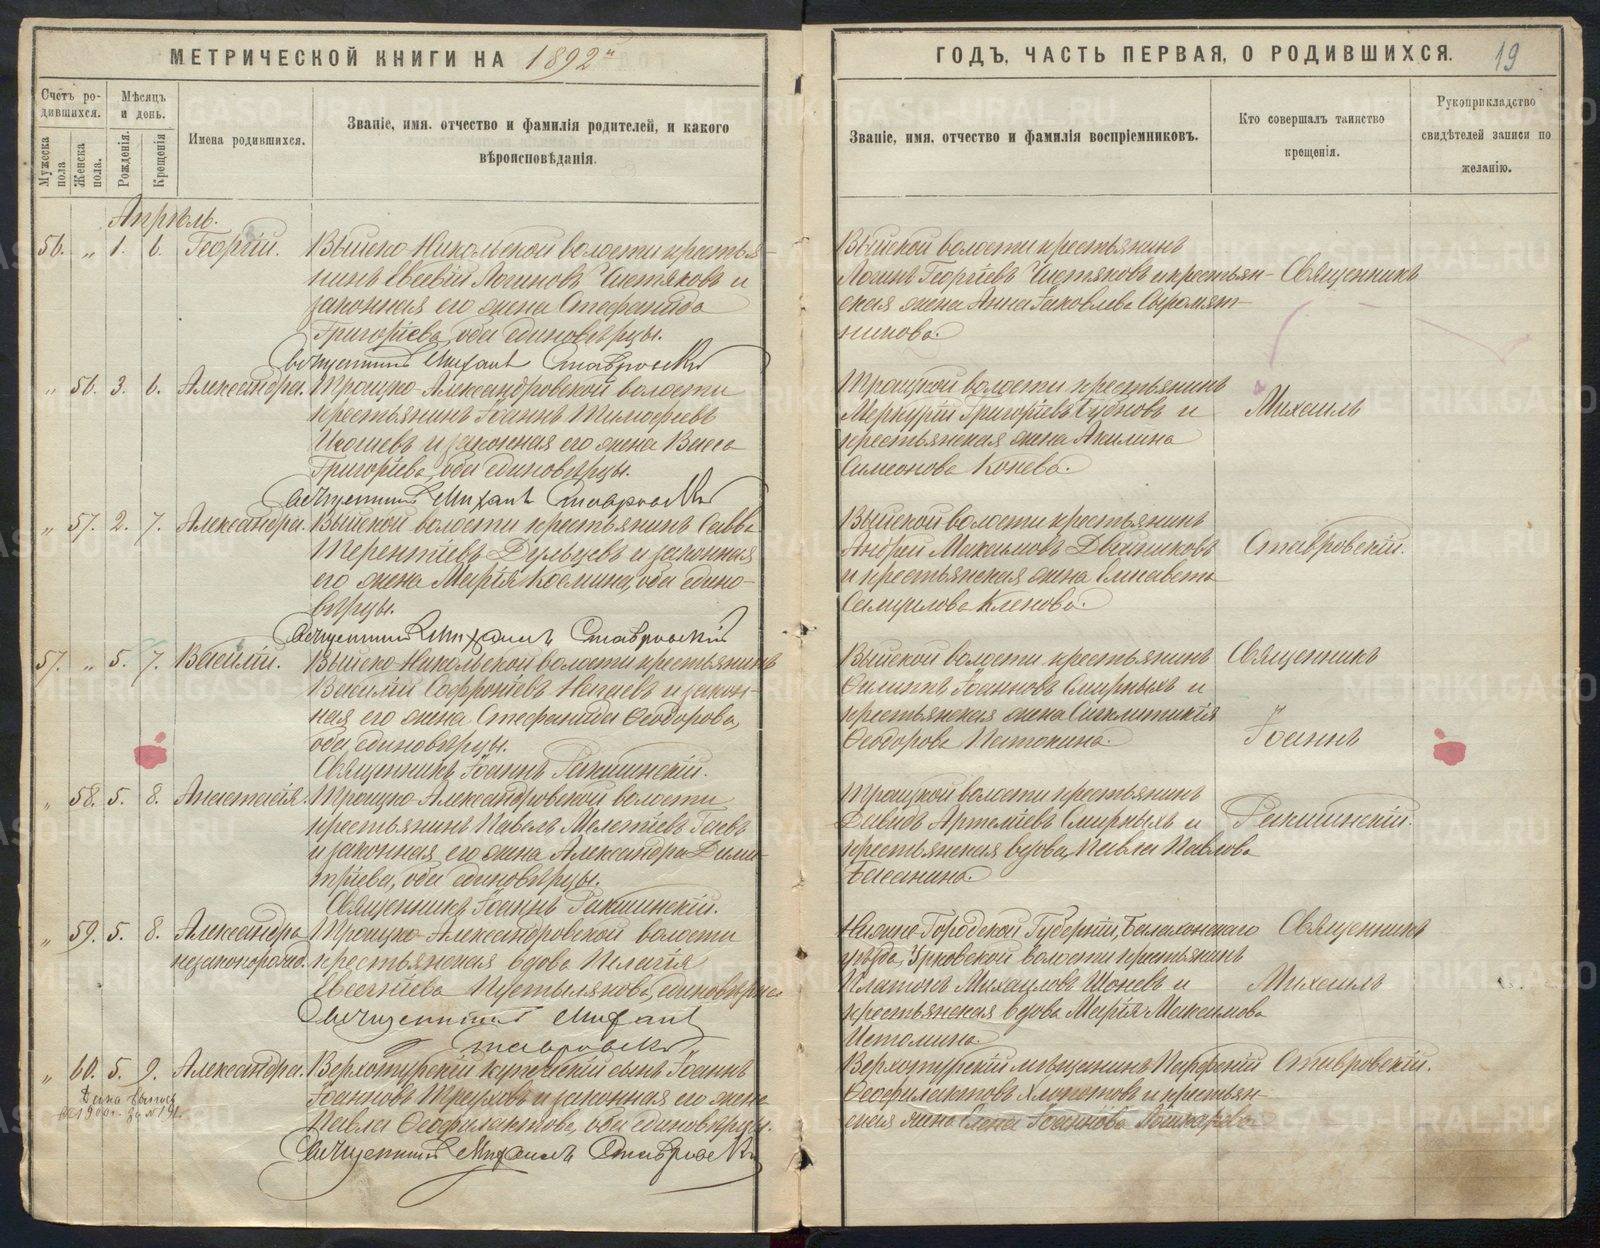 МЕТРИЧЕСКОЙ КНИГИ НА 1892й
Счетъ родившихся.
Мужеска пола
Женска пола.
Мѣсяцъ и день.
Рожденія.
Крещенія
Имена родившихся.
Званіе, имя, отчество и фамилія родителей, и какого
вѣроисповѣданія.
Апрѣль.
56. „ 1. 6. Георгій. Выйско-Никольской волости крестья-
нинъ Евсевій Логиновъ Чистяковъ и
законная его жена Стефанида
Григоріева, оба единовѣрцы.
Священникъ Михаилъ Ставровскій
„ 56. 3. 6. Александра. Троицко-Александровской волости
крестьянинъ Іоаннъ Тимофеевъ
и законная его жена Васса
Григоріева, оба единовѣрцы.
Священникъ Михаилъ Ставровскій
„ 57. 2. 7. Александра. Выйской волости крестьянинъ Савва
Терентіевъ Дульцевъ и законная
его жена Марія Космина, оба едино-
вѣрцы.
Священникъ Михаилъ Ставровскій
57. „ 5. 7. Василій. Выйско-Никольской волости крестьянинъ
Василій Софроніевъ Ногаевъ и закон-
ная его жена Стефанида Ѳеодорова,
оба единовѣрцы.
Священникъ Іоаннъ Ракшинскій.
„ 58. 5. 8. Анастасія. Троицко-Александровской волости
крестьянинъ Павелъ Мелетіевъ Гаевъ
и законная его жена Александра Дими-
тріева, оба единовѣрцы.
Священникъ Іоаннъ Ракшинскій.
„ 59. 5. 8. Александра Троицко-Александровской волости
незаконорожд. крестьянская вдова Пелагія
Евгеніева Пустылякова, единовѣрца
Священникъ Михаилъ
Ставровскій
„ 60. 5. 9. Александра. Верхотурскій купеческій сынъ Іоаннъ
Іоанновъ Треуховъ и законная его жена
Павла Ѳеофилактова, оба единовѣрцы.
Священникъ Михаилъ Ставровскій
Дана выпись
ГОДЪ, ЧАСТЬ ПЕРВАЯ, О РОДИВШИХСЯ. 19
Званіе, имя, отчество и фамилія воспріемниковъ.
Кто совершалъ таинство
крещенія.
Рукоприкладство
свидѣтелей записи по
желанію.
Выйской волости крестьянинъ
Логинъ Георгіевъ Чистяковъ и крестьян- Священникъ
ская жена Анна Іаковлева Сыромят-
никова.
Троицкой волости крестьянинъ
Меркурій Григоріевъ Губновъ и Михаилъ
крестьянская жена Акилина
Симеонова Конева.
Выйской волости крестьянинъ
Андрей Максимовъ Двойниковъ Ставровскій.
и крестьянская жена Елисавета
Самуилова Кленова.
Выйской волости крестьянинъ Священникъ
Филиппъ Іоанновъ Смирныхъ и
крестьянская жена Сигклитикія
Ѳеодорова Патокина. Іоаннъ
Троицкой волости крестьянинъ
Давидъ Артеміевъ Смирныхъ и Ракшинскій.
крестьянская вдова, Павла Павлова
Басанина.
Нижно-Городской Губерніи, Балахонскаго Священникъ
уѣзда, Урковской волости крестьянинъ
Платонъ Михаиловъ Шоневъ и Михаилъ
крестьянская вдова Марія Максимова
Истомина.
Верхотурскій мѣщанинъ Парфеній Ставровскій.
Ѳеофилактовъ Хлопотовъ и крестьян-
ская жена Елена Іоаннова
METRIKI.GASO-URAL.RU